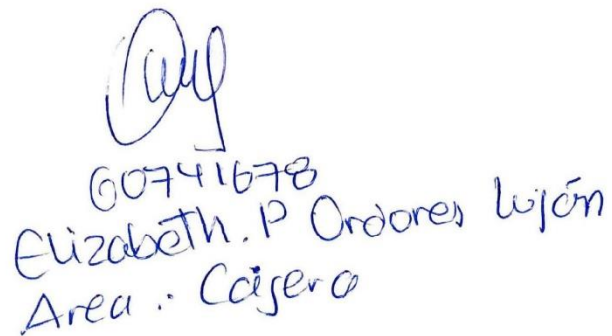 60741678
Elizabeth. P Ordores Luján
Area : Cajera